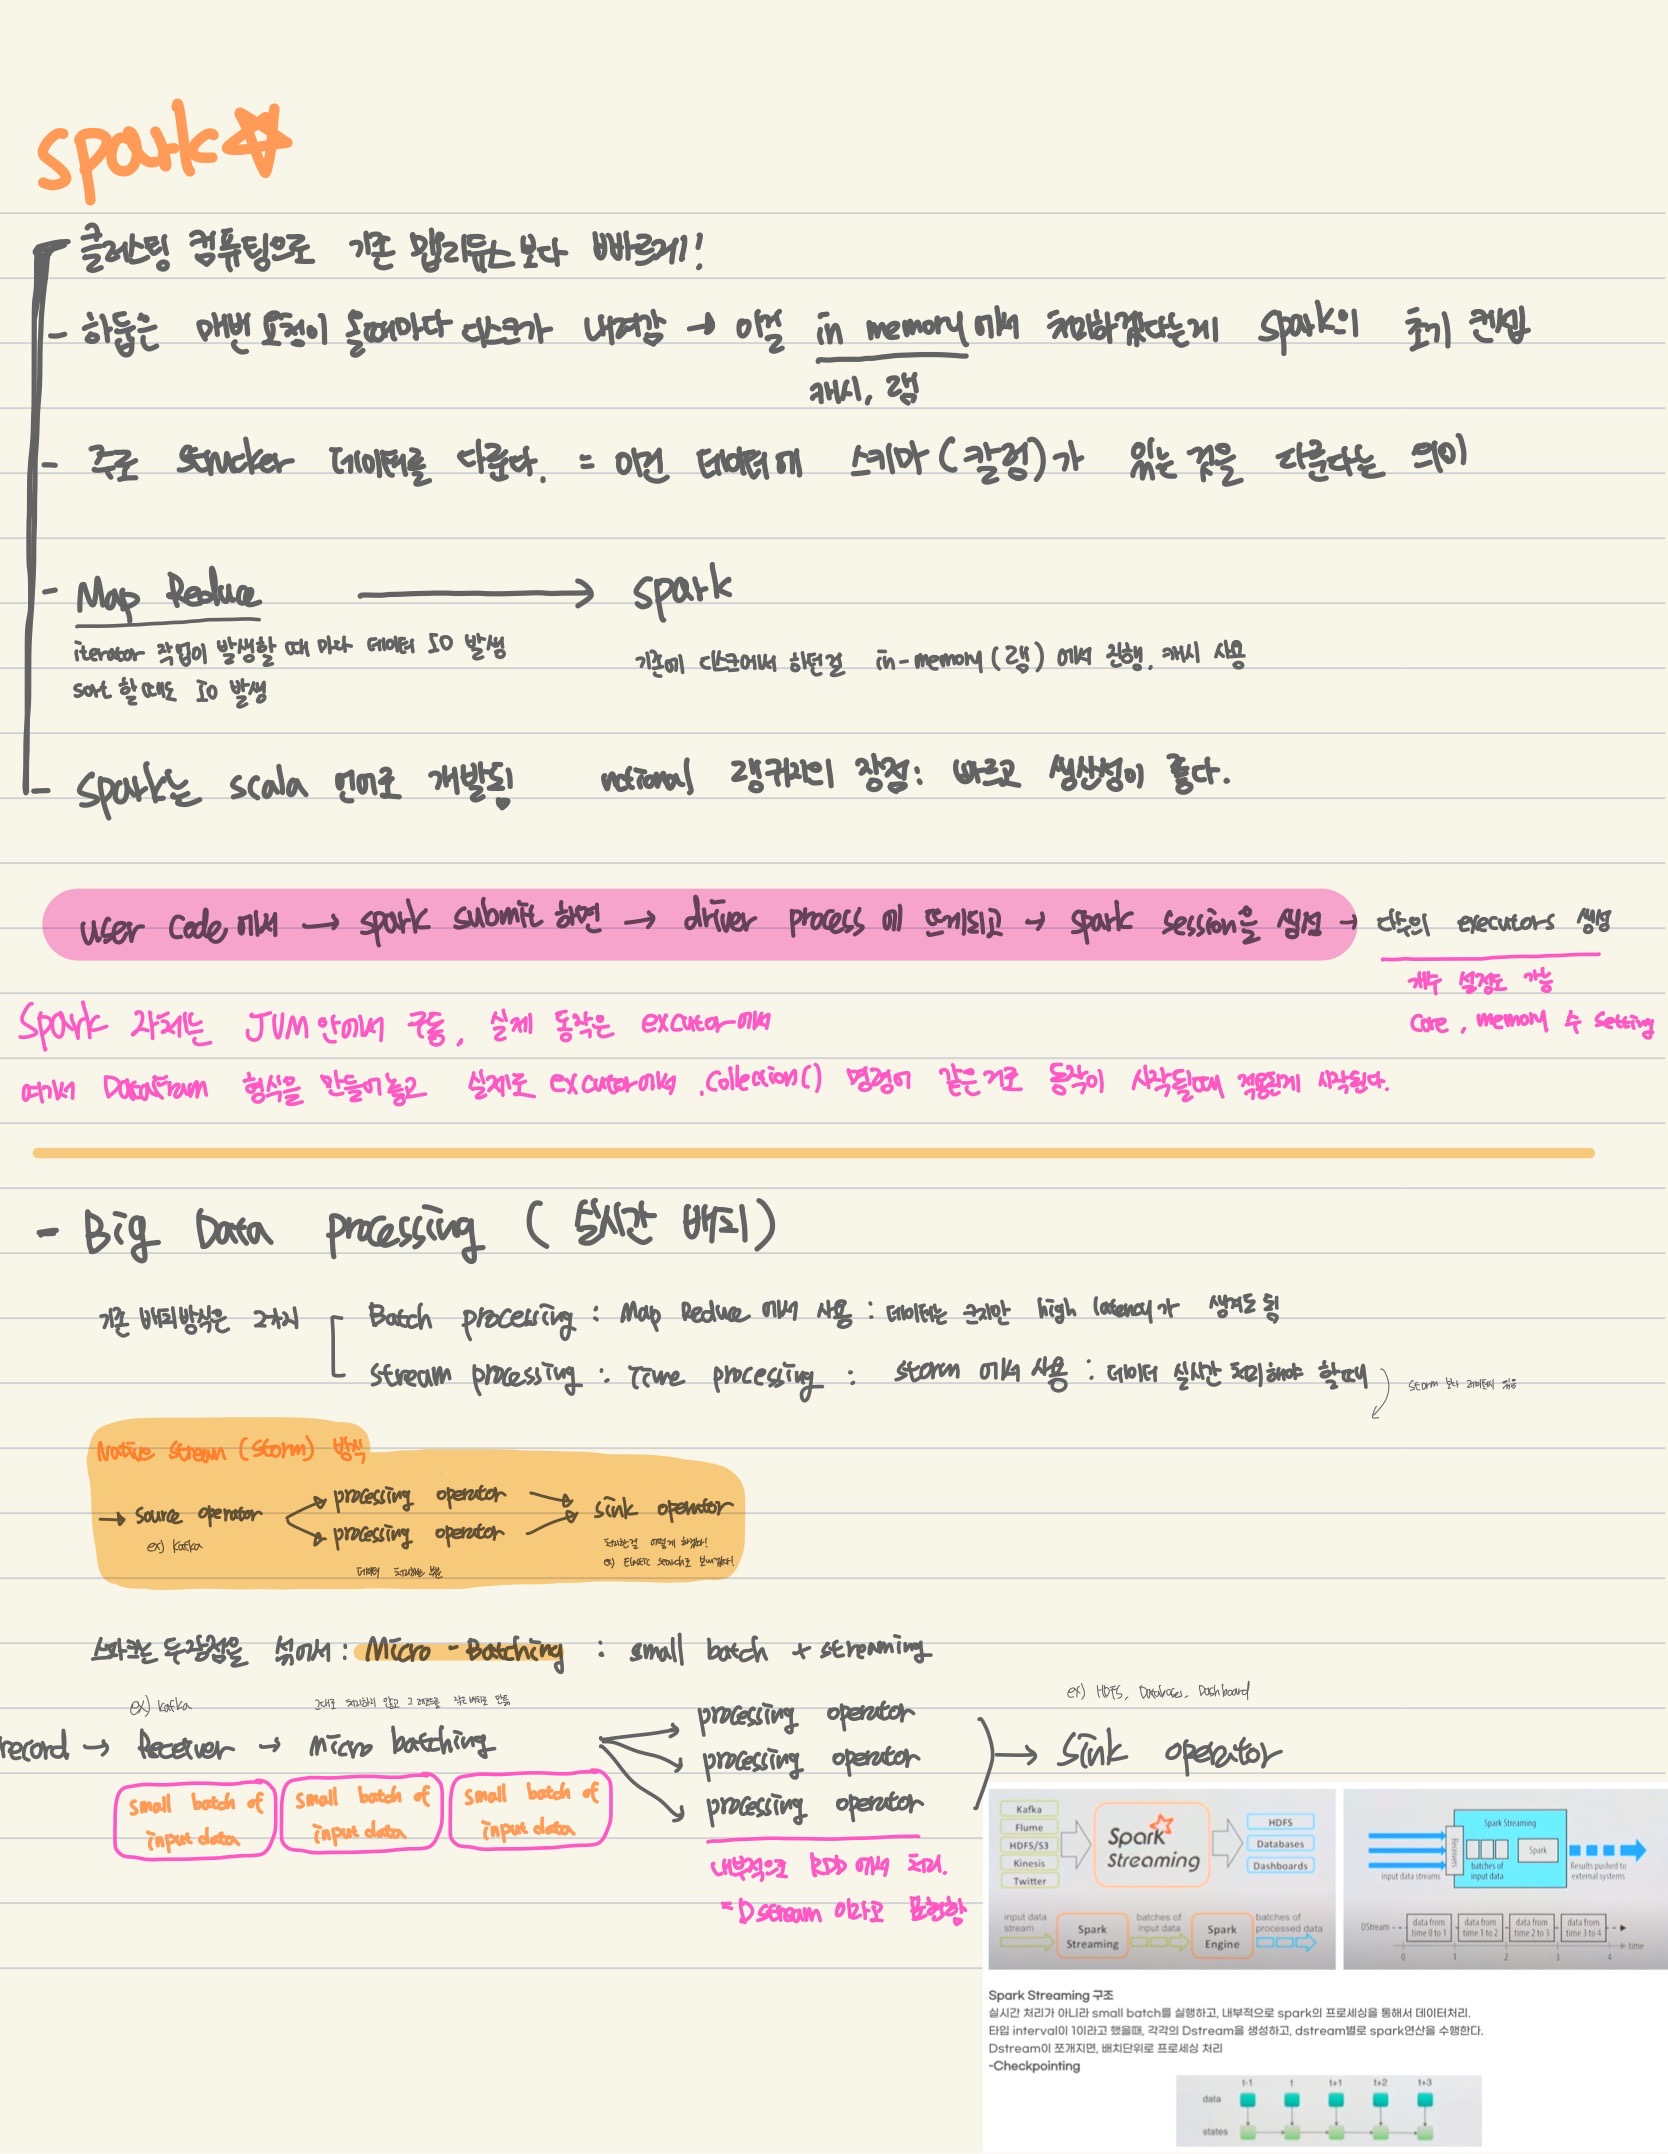 spark
클러스팅 컴퓨팅으로 기존 맵리듀스보다 빠르게!
- 하둡은 매번 요청이 올때마다 디스크가 내려감 → 이걸 in memory에서 처리하겠다는게 Spark의 초기 컨셉
캐시, 램
- 주로 strucker 데이터를 다룬다. = 이건 데이터에 스키마(칼럼)가 있는 것을 다룬다는 의미
- Map Reduce → spark
iterator 작업이 발생할 때 마다 데이터 IO 발생
기존에 디스크에서 하던걸 in-memory(램)에서 진행. 캐시 사용
sort 할때도 IO 발생
- Spark는 scala 언어로 개발됨 nctional 랭귀지의 장점: 빠르고 생산성이 좋다.
user code에서 → spark submit 하면 → driver process에 뜨게되고 → spark session을 생성 → 다수의 executors 생성
개수 설정도 가능
Core, memory 수 setting
Spark 자체는 JVM안에서 구동, 실제 동작은 excutor에서
여기서 Datafram 형식을 만들어놓고 실제로 excutor에서 .collection() 명령어 같은거로 동작이 시작될때 시작된다.
- Big Data processing (실시간 배치)
기존 배치방식은 2가지
Batch processing : Map Reduce에서 사용 : 데이터는 크지만 high latency가 생겨도 됨
stream processing : Time processing : storm에서 사용 : 데이터 실시간 처리해야 할때
storm 보다
Native stream (storm) 방식
→ source operator
ex) kafka
processing operator
processing operator
데이터 처리하는 부분
sink operator
처리한걸 어떻게 하겠다!
ex) Elastic search로 보내겠다!
스파크는 두장점을 섞어서 : Micro-Batching : small batch + streaming
ex) kafka
그대로 처리하지 않고 그 작은 배치로 만듦
ex) HDFS, Databases, Dashboard
record → Receiver → micro batching
processing operator
processing operator
processing operator
→ Sink operator
small batch of input data
small batch of input data
small batch of input data
내부적으로 RDD에서 처리.
= Dstream 이라고 표현함
Kafka
Flume
HDFS/S3
Kinesis
Twitter
Spark Streaming
HDFS
Databases
Dashboards
input data stream
Spark Streaming
batches of input data
Spark Engine
batches of processed data
Spark Streaming
input data streams
Receivers
batches of input data
Spark
Results pushed to external systems
DStream
data from time 0 to 1
data from time 1 to 2
data from time 2 to 3
data from time 3 to 4
time
0 1 2 3 4
Spark Streaming 구조
실시간 처리가 아니라 small batch를 실행하고, 내부적으로 spark의 프로세싱을 통해서 데이터처리.
타입 interval이 1이라고 했을때, 각각의 Dstream을 생성하고, dstream별로 spark연산을 수행한다.
Dstream이 쪼개지면, 배치단위로 프로세싱 처리
-Checkpointing
t-1 t t+1 t+2 t+3
data
states